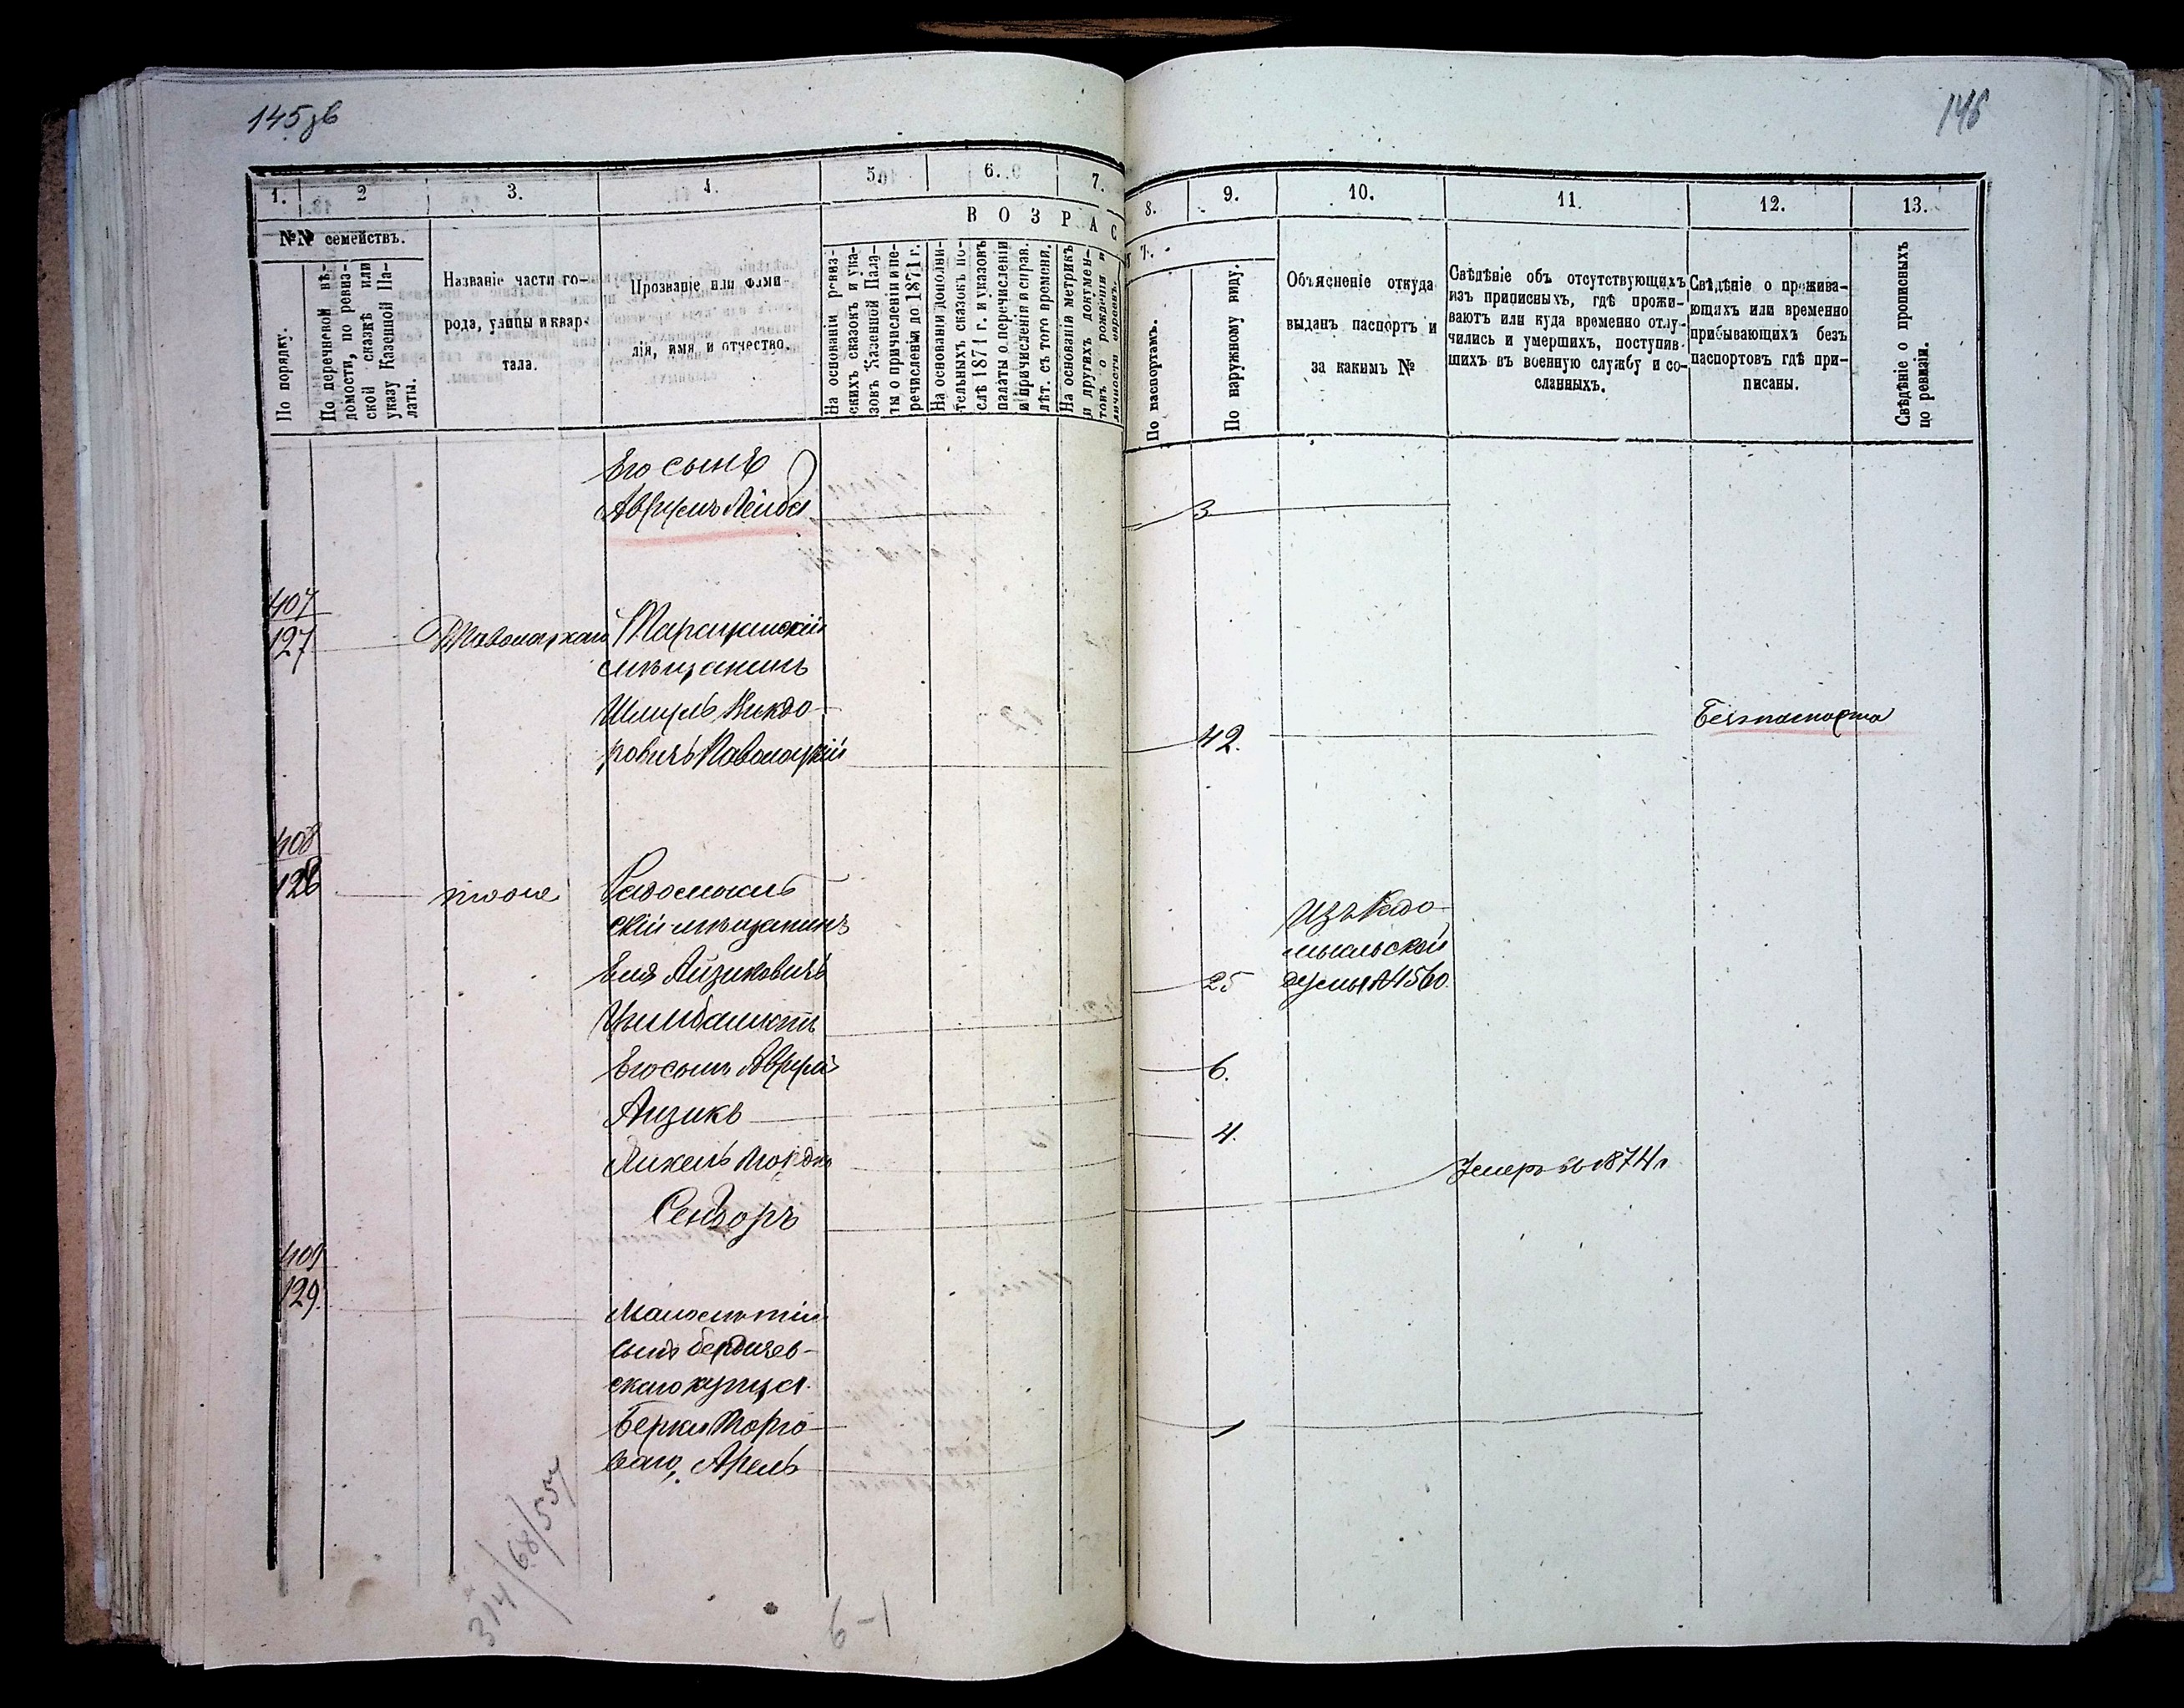 145 зв
146
1.
2
3.
4.
5.
6.
7.
8.
9.
10.
11.
12.
13.
ВОЗРАС
Т Ъ.
№№ семействъ.
По порядку.
По перечневой вѣ-
домости, по ревиз-
ской сказкѣ или
указу Казенной Па-
латы.
Названіе части го-
рода, улицы и квар-
тала.
Прозваніе или фами-
лія, имя и отчество.
На основаніи ревиз-
скихъ сказокъ и ука-
зовъ Казенной Пала-
ты о причисленіи и пе-
речисленіи до 1871 г.
На основаніи дополни-
тельныхъ сказокъ по-
слѣ 1871 г. и указовъ
палаты о перечисленіи
и причисленіи и справ.
лѣт. съ того времени.
На основаніи метрикъ
и другихъ докумен-
товъ о рожденіи и
личности евреевъ.
По паспортамъ.
По наружному виду.
Объясненіе откуда
выданъ паспортъ и
за какимъ №
Свѣдѣніе объ отсутствующихъ
изъ приписныхъ, гдѣ прожи-
ваютъ или куда временно отлу-
чились и умершихъ, поступив-
шихъ въ военную службу и со-
сланныхъ.
Свѣдѣніе о прожива-
ющихъ или временно
прибывающихъ безъ
паспортовъ гдѣ при-
писаны.
Свѣдѣніе о прописныхъ
по ревизіи.
Его сынъ
Аврумъ Лейба
3
407
127
Таращанскій
мѣщанинъ
Шмуль Викдо-
ровичъ Паволоцкій
42.
Безъ паспорта
408
128
тоже
Радомысль
скій мѣщанинъ
Еля Айзиковичъ
Цымбалистъ
25
Изъ Радо-
мысльской
думы № 4560.
Его сынъ Аврумъ
6.
Айзикъ
4.
Янкель Мордко
Сендоръ
Умеръ въ 1874 г.
409
129.
Малолѣтній
сынъ бердичев-
скаго купца
Берка Торго-
ваго, Арель
1
314/68/557
6-1